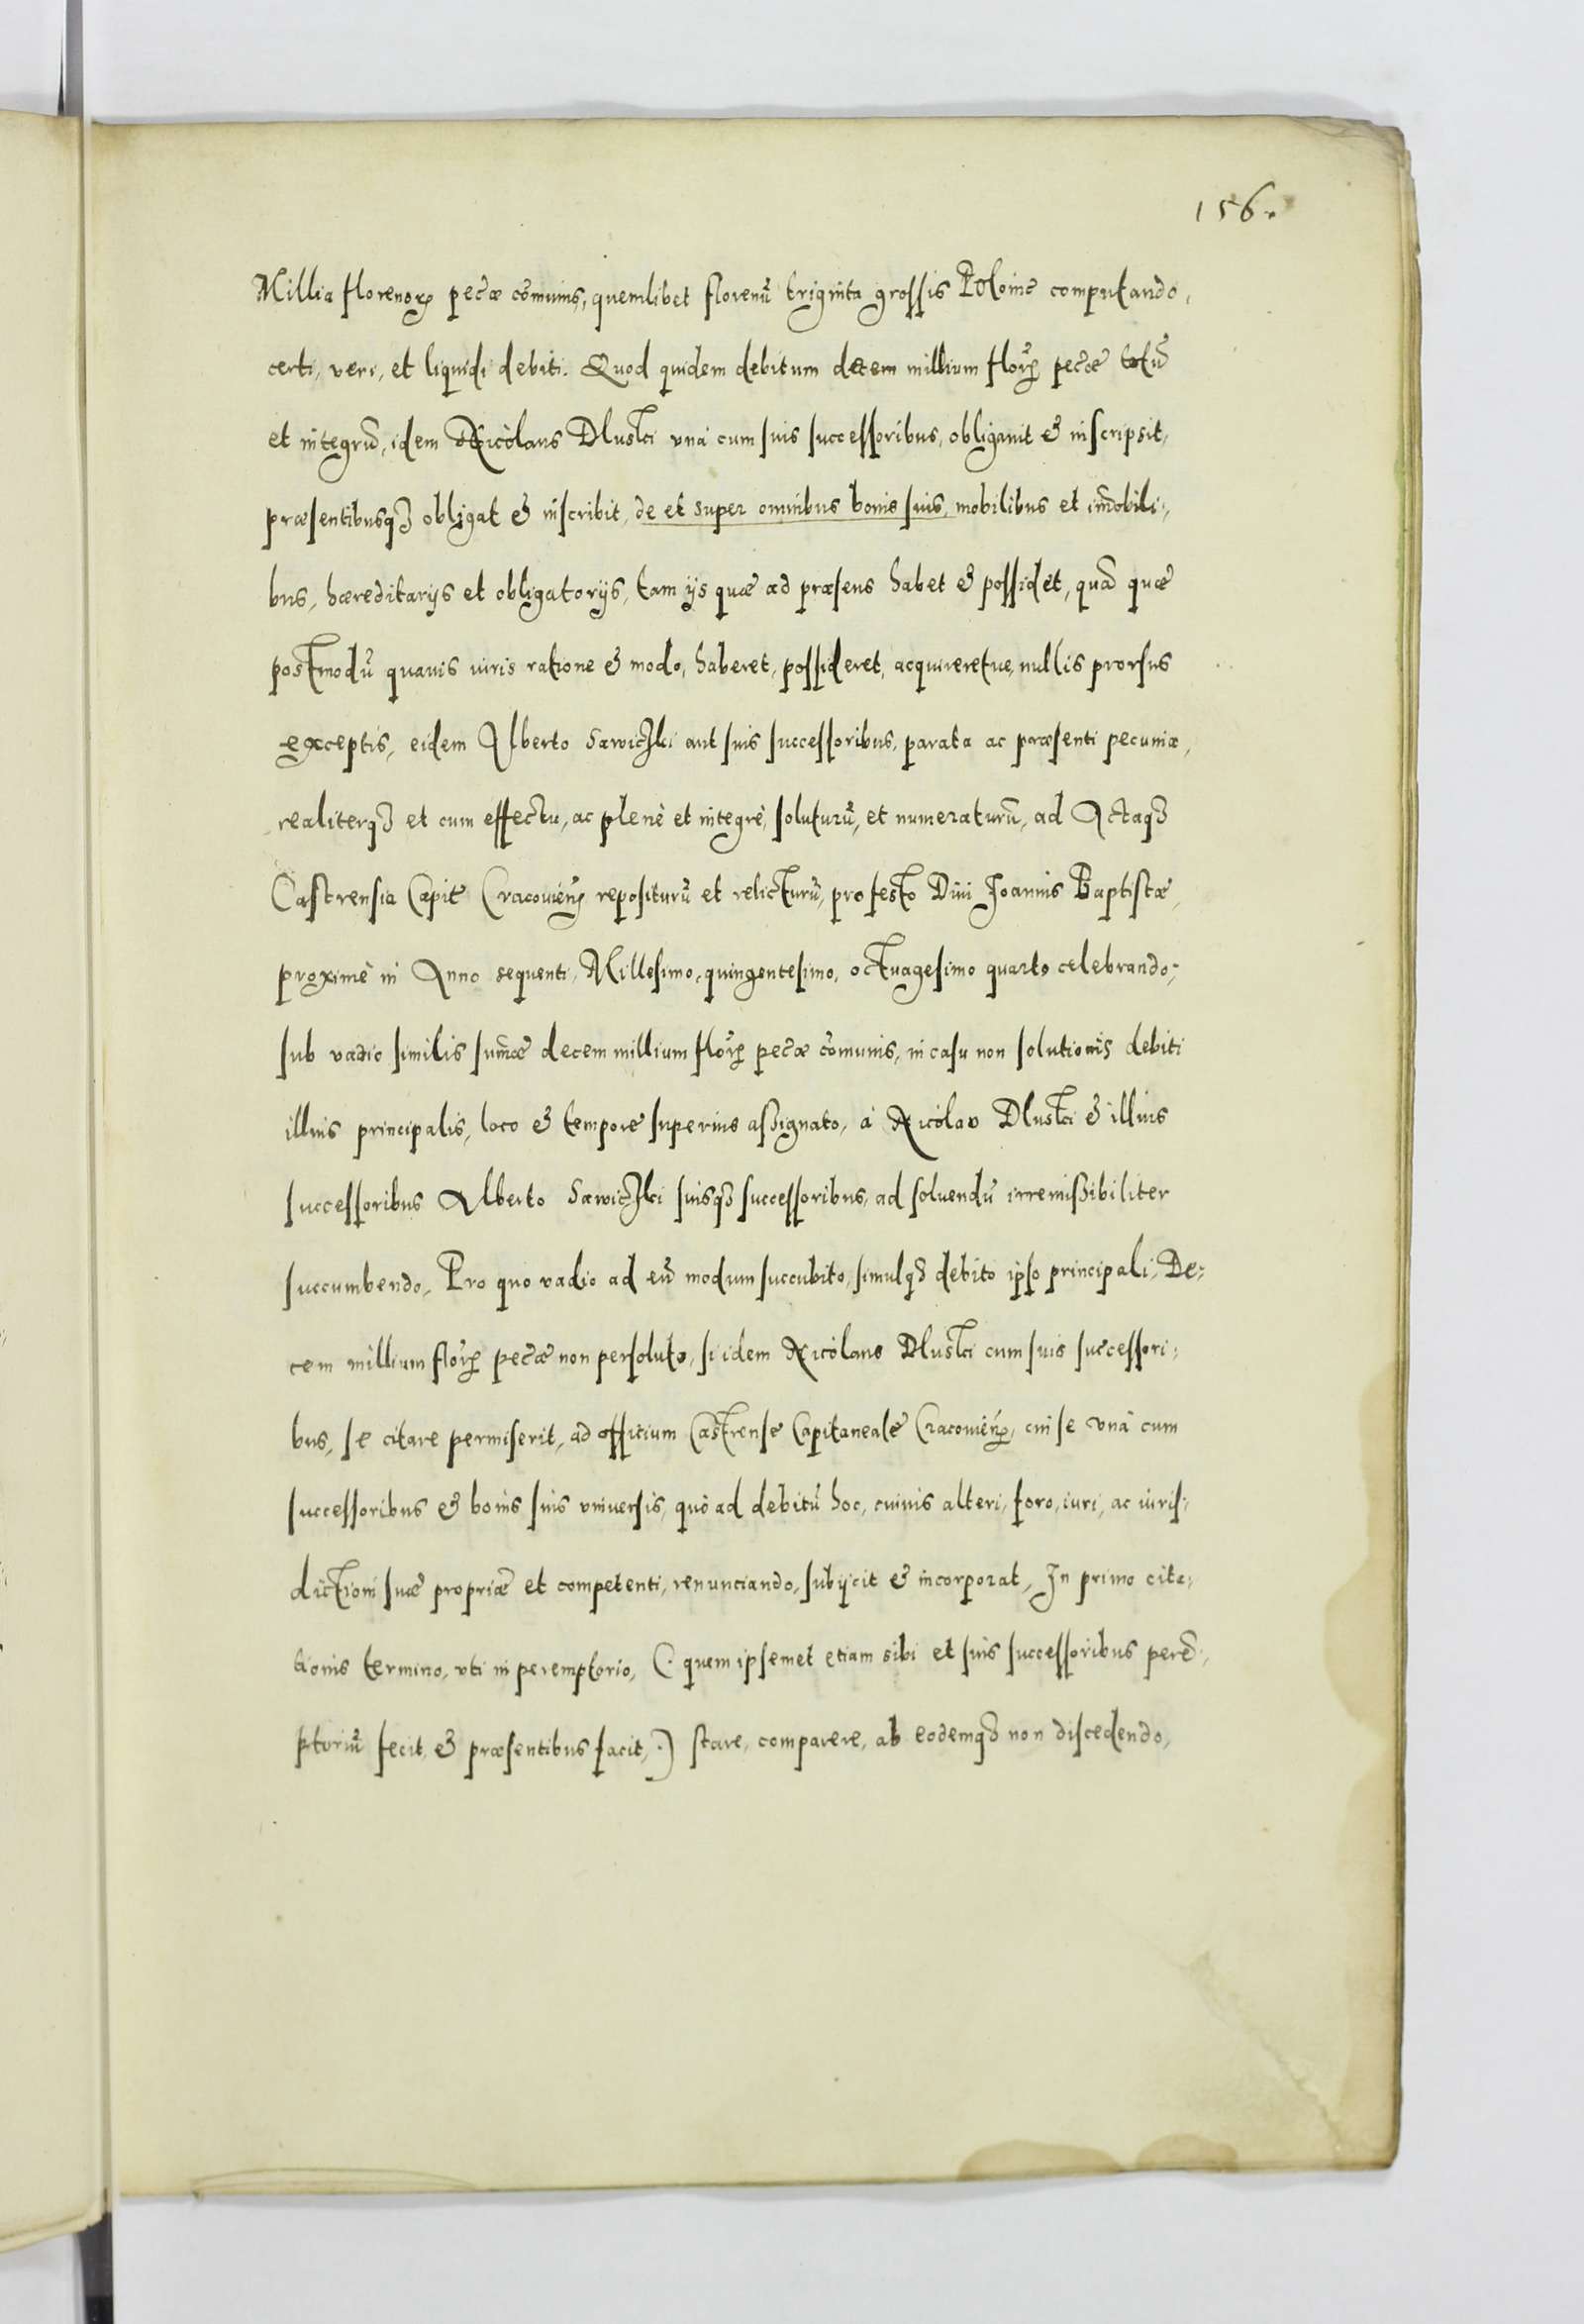 156.
Millia florenoꝝ pecũæ cõmunis, quemlibet florenũ triginta grossis Poloniæ computando,
certi, veri, et liquidi debiti. Quod quidem debitum decem millium florꝝ pecũæ totũ
et integrũ, idem Nicolaus Dluski vnà cum suis successoribus, obligauit & inscripsit,
præsentibusqꝫ obligat & inscribit, de et super omnibus bonis suis, mobilibus et im̃obili-
bus, hæreditarijs et obligatorijs, tam ijs quæ ad præsens habet & possidet, quã quæ
postmodũ quauis iuris ratione & modo, haberet, possideret, acquireretue, nullis prorsus
exceptis, eidem Alberto Sawiczki aut suis successoribus, parata ac præsenti pecunia,
realiterqꝫ et cum effectu, ac plenè et integrè, soluturũ, et numeraturũ, ad Actaqꝫ
Castrensia Capit Cracouieñ repositurũ et relicturũ, pro festo Diui Joannis Baptistæ,
proximè in Anno sequenti, Millesimo, quingentesimo, octuagesimo quarto celebrando;
sub vadio similis sum̃æ decem millium florꝝ pecũæ cõmunis, in casu non solutionis debiti
illius principalis, loco & tempore superius assignato, à Nicolao Dluski & illius
successoribus Alberto Sawiczki suisqꝫ successoribus, ad soluendũ irremissibiliter
succumbendo, Pro quo vadio ad eũ modum succubito, simulqꝫ debito ipso principali, De-
cem millium florꝝ pecũæ non persoluto, si idem Nicolaus Dluski cum suis successori-
bus, se citare permiserit, ad officium Castrense Capitaneale Cracouieñ, cui se vnà cum
successoribus & bonis suis vniuersis, quò ad debitũ hoc, cuiuis alteri, foro, iuri, ac iuris-
dictioni suæ propriæ et competenti, renunciando, subijcit & incorporat, In primo cita-
tionis termino, vti in peremptorio, (. quem ipsemet etiam sibi et suis successoribus perẽ-
ptoriũ fecit, & præsentibus facit, .) stare, comparere, ab eodemqꝫ non discedendo,